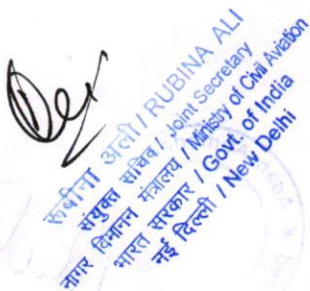 रूबीना अली / RUBINA ALI
संयुक्त सचिव / Joint Secretary
नागर विमानन मंत्रालय / Ministry of Civil Aviation
भारत सरकार / Govt. of India
नई दिल्ली / New Delhi